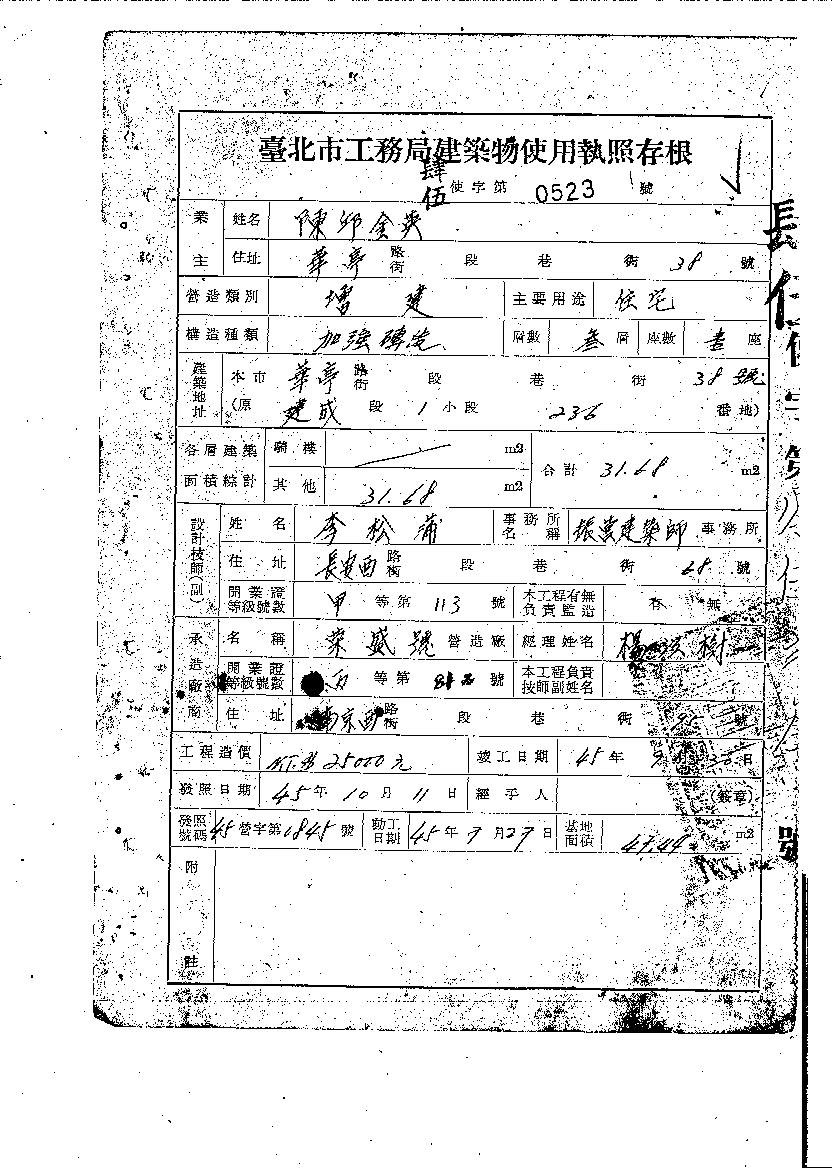 臺北市工務局建築物使用執照存根
肆伍 使字第 0523 號
業主 姓名 陳邱金英
住址 華亭 路街 段 巷 衖 38 號
營造類別 增建 主要用途 住宅
構造種類 加強磚造 層數 叁層 座數 壹座
建築地址 本市 華亭 路街 段 巷 衖 38號
(原 建成 段 1 小段 236 番地)
各層建築面積綜計 騎樓 m2 合計 31.68 m2
其他 31.68 m2
設計技師(副) 姓名 李松蒲 事務所名稱 建築師 事務所
住址 長安西 路街 段 巷 衖 68 號
開業證等級號數 甲 等第 113 號 本工程有無負責監造 有 無
承造廠商 名稱 榮盛號 營造廠 經理姓名 楊 樹
開業證等級號數 丙 等第 號 本工程負責技師副姓名
住址 南京西 路街 段 巷 衖 號
工程造價 NT.$ 25000元 竣工日期 45年 9月 30日
發照日期 45年 10月 11日 經手人 (簽章)
發照號碼 45營字第1845號 動工日期 45年 7月27日 基地面積 m2
附註
長
號